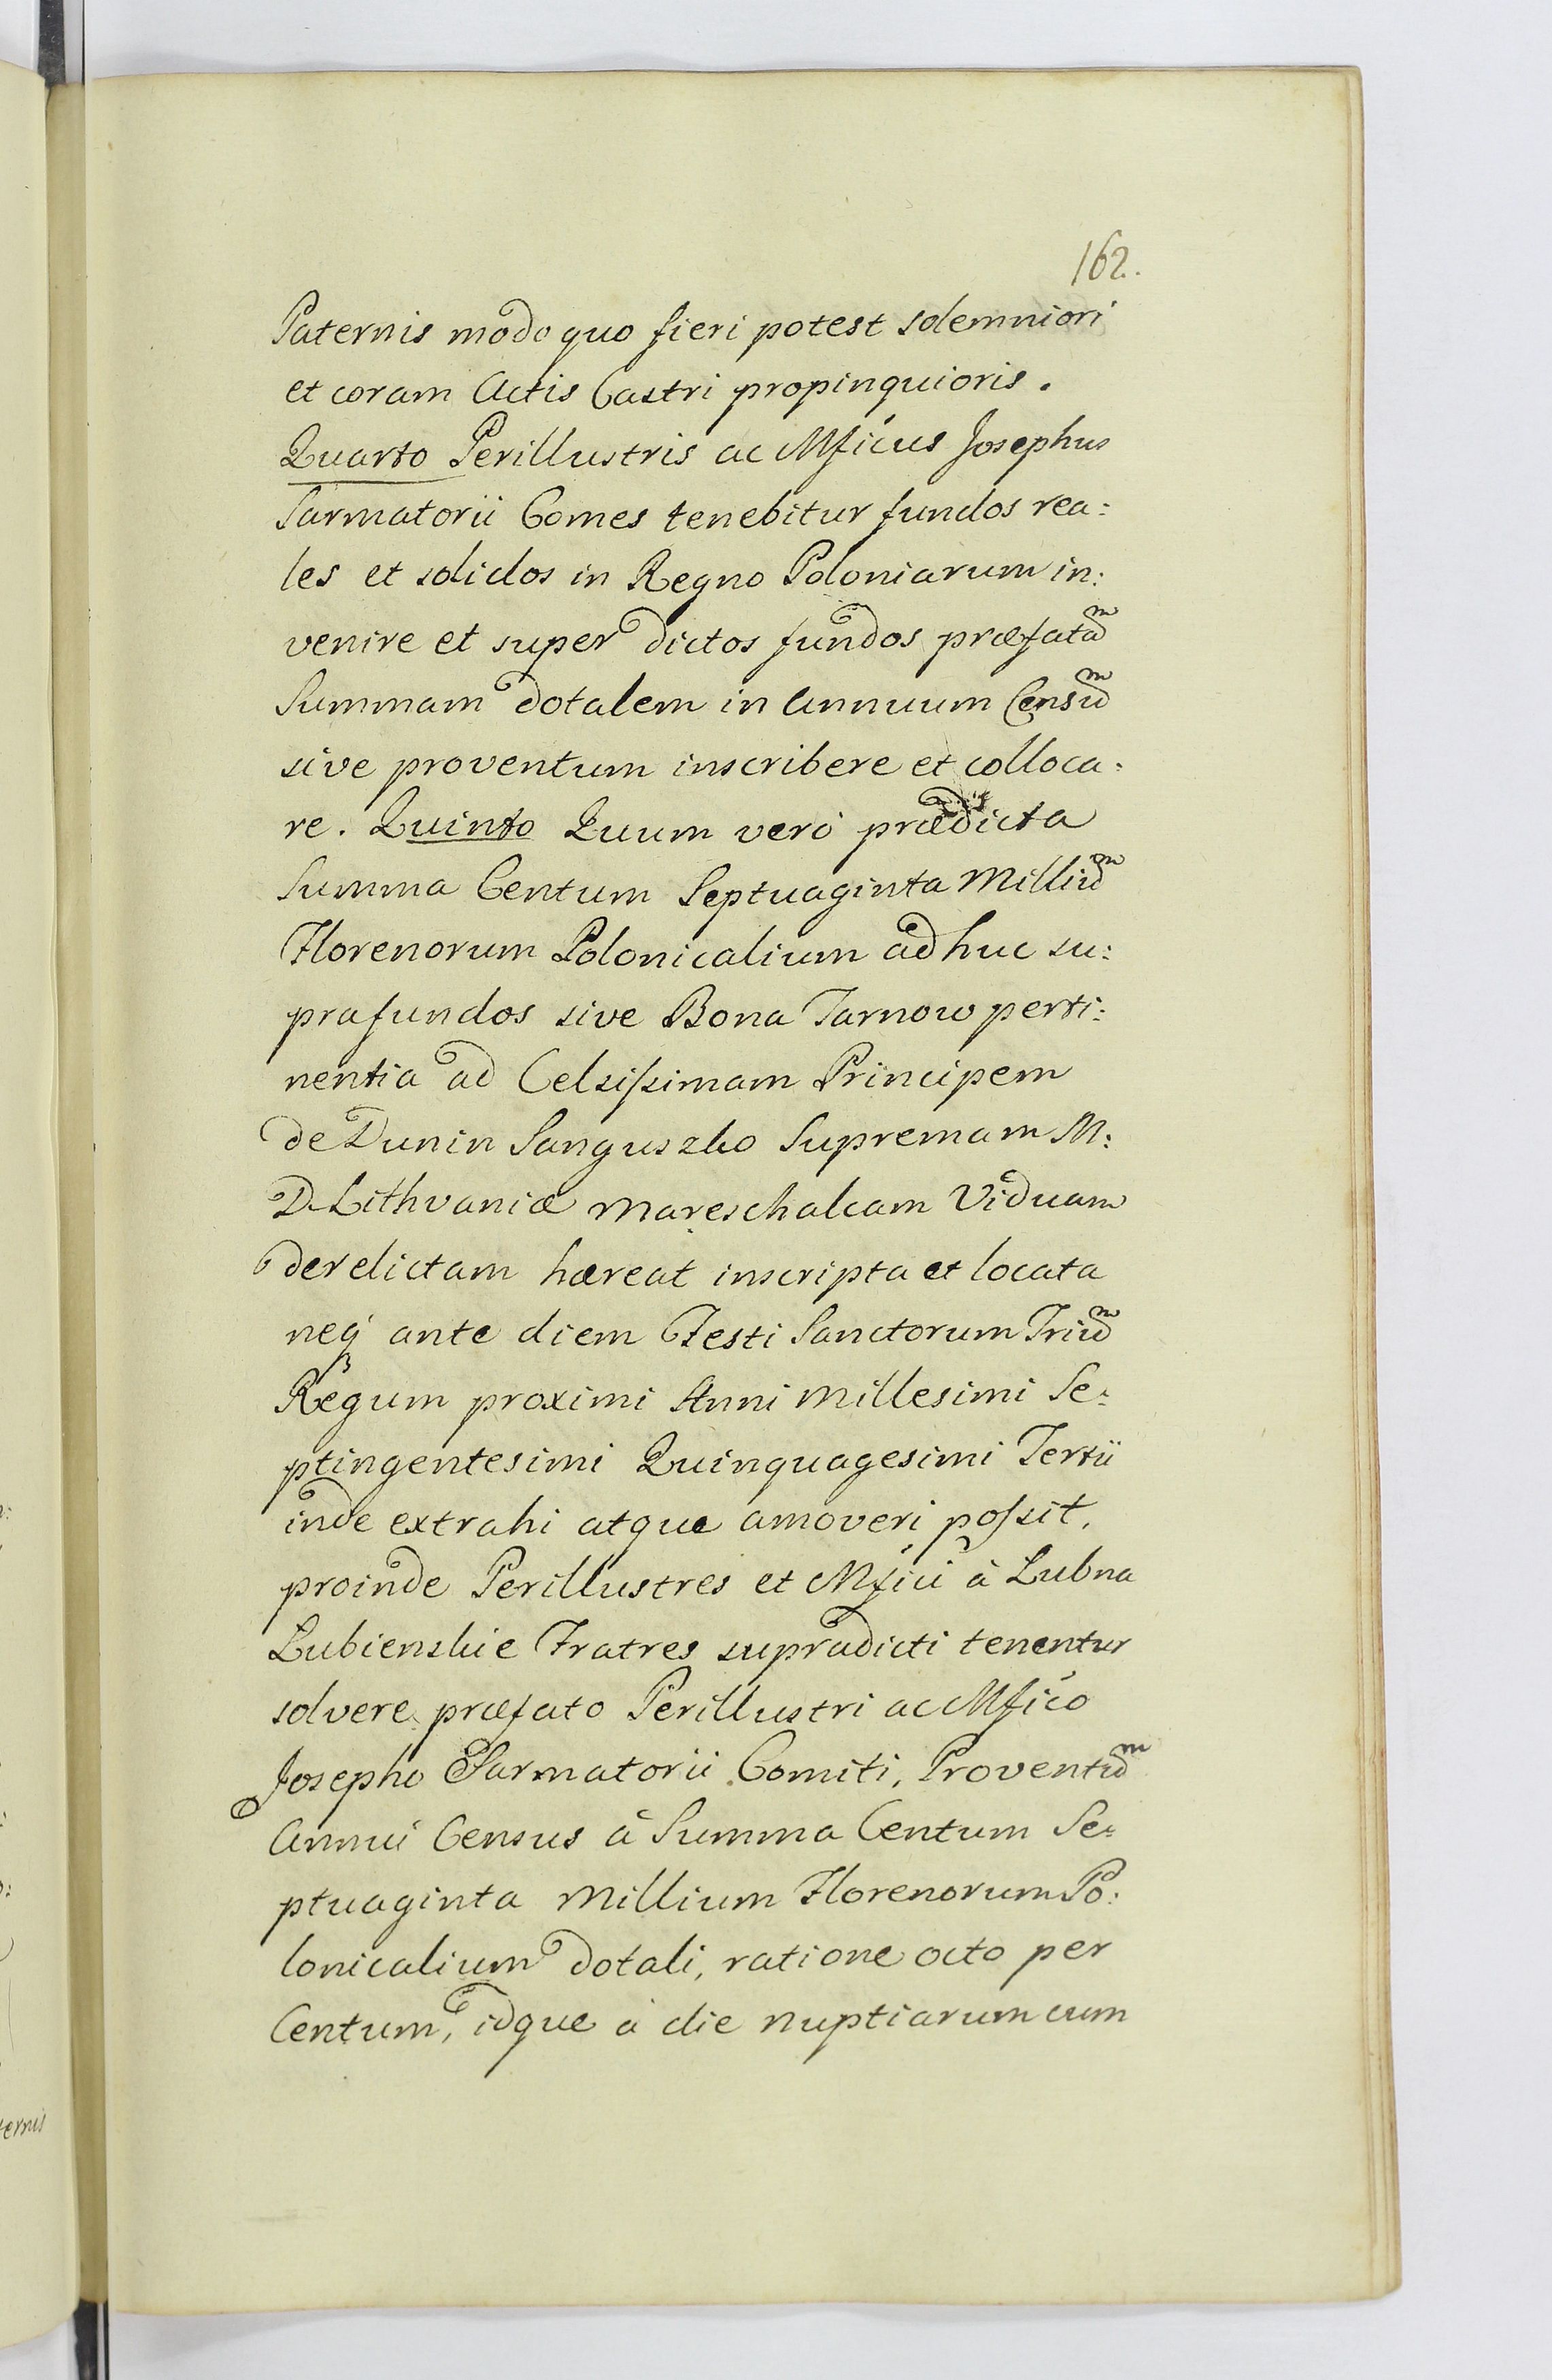 162.
Paternis modo quo fieri potest solemniori
et coram Actis Castri propinquioris.
Quarto Perillustris ac Mficus Josephus
Sarmatorii Comes tenebitur fundos rea:
les et solidos in Regno Poloniarum in:
venire et super dictos fundos præfatam
Summam dotalem in annuum Censum
sive proventum inscribere et colloca:
re. Quinto Quum vero prædicta
Summa Centum Septuaginta Millium
Florenorum Polonicalium adhuc su:
pra fundos sive Bona Tarnow perti:
nentia ad Celsissimam Principem
de Dunin Sanguszko Supremam M:
D. Lithvaniæ Mareschalcam Viduam
derelictam hæreat inscripta et locata
neq ante diem Festi Sanctorum Trium
Regum proximi Anni Millesimi Se:
ptingentesimi Quinquagesimi Tertii
inde extrahi atque amoveri possit,
proinde Perillustres et Mfici à Lubna
Lubienskie Fratres supradicti tenentur
solvere præfato Perillustri ac Mfico
Josepho Sarmatorii Comiti, Proventum
Annui Census à Summa Centum Se:
ptuaginta Millium Florenorum Po:
lonicalium dotali, ratione octo per
Centum, idque à die nuptiarum cum
ternis